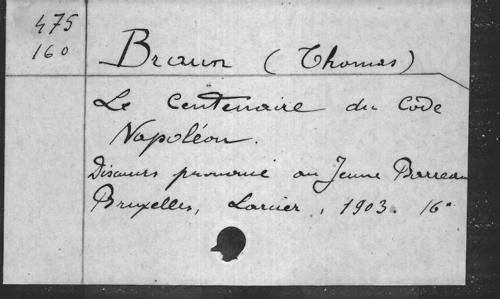 475
160
Braun (Thomas)
Le Centenaire du Code
Napoléon.
Discours prononcé au Jeune Barreau
Bruxelles, Larcier, 1903. 16°